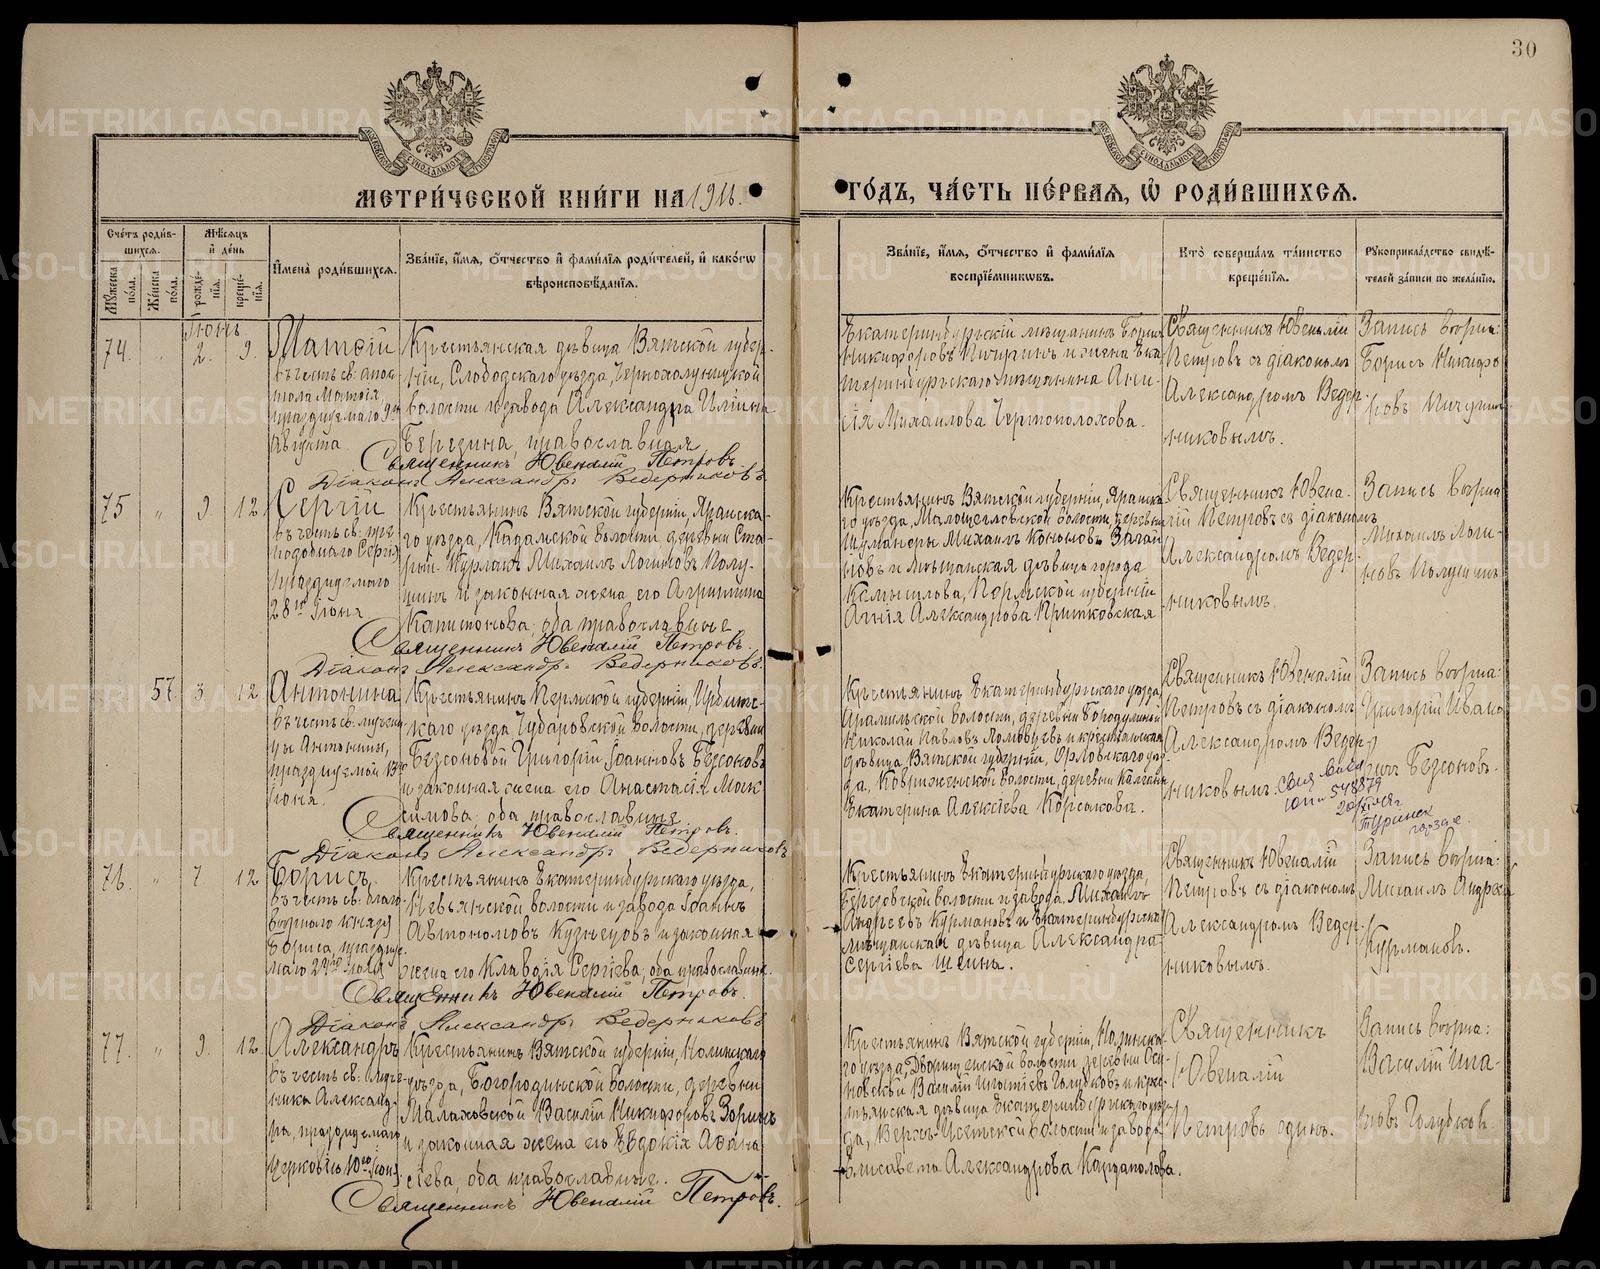 30
МЕТРИ́ЧЕСКОЙ КНИ́ГИ НА 1911 ГО́ДЪ, ЧА́СТЬ ПЕ́РВАЯ, Ѡ РОДИ́ВШИХСЯ.
Сче́тъ роди́в-
шихся.
Му́жеска по́ла.
Же́нска по́ла.
Мѣ́сяцъ и де́нь
рожде́-
нія.
креще́-
нія.
Имена̀ роди́вшихся.
Зва́ніе, и́мя, о́тчество и фами́лія роди́телей, и како́гѡ
вѣроисповѣ́данія.
Зва́ніе, и́мя, о́тчество и фами́лія
воспріе́мниковъ.
Кто̀ соверша́лъ та́инство
креще́нія.
Рукоприкла́дство свидѣ́-
телей за́писи по жела́нію.
Іюнь
74. " 2. 9.
Матѳій
въ честь св. апос
тола Матѳія,
празднуемаго 9го
Августа
Крестьянская дѣвица Вятской губер-
ніи, Слободскаго уѣзда, Чернохолуницкой
волости и завода Александра Ильина
Березина, православная
Священникъ Ювеналій Петровъ.
Діаконъ Александръ Ведерниковъ.
Екатеринбургскій мѣщанинъ Борисъ
Никифоровъ Пичугинъ и жена Ека
теринбургскаго мѣщанина Ани-
сія Михаилова Чертополохова.
Священникъ Ювеналій
Петровъ съ діакономъ
Александромъ Ведер-
никовымъ.
Запись вѣрна:
Борисъ Никифо
ровъ Пичугинъ
75 " 9. 12.
Сергій
въ честь св. пре
подобнаго Сергія
празднуемаго
28го Іюня
Крестьянинъ Вятской губерніи, Яранска-
го уѣзда, Кадамской волости, деревни Ста-
рый-Курлакъ Михаилъ Логиновъ Полу-
шинъ и законная жена его Агриппина
Капитонова, оба православные
Священникъ Ювеналій Петровъ.
Діаконъ Александръ Ведерниковъ.
Крестьянинъ Вятской губерніи, Яранска-
го уѣзда, волости, деревни
Михаилъ Кононовъ
новъ и мѣщанская дѣвица города
Камышлова, Пермской губерніи
Агнія Александрова
Священникъ Ювена-
лій Петровъ съ діакономъ
Александромъ Ведер-
никовымъ.
Запись вѣрна
Михаилъ Логи-
новъ Полушинъ
57 3. 12
Антонина
въ честь св. мучени
цы Антонины,
празднуемой 13го
Іюня.
Крестьянинъ Пермской губерніи, Ирбитс-
каго уѣзда Чубаровской волости, деревни
Безсоновой Григорій Іоанновъ Безсоновъ
и законная жена его Анастасія Мак
симова, оба православные
Священникъ Ювеналій Петровъ.
Діаконъ Александръ Ведерниковъ
Крестьянинъ Екатеринбургскаго уѣзда,
Арамильской волости, деревни Бородулиной
Николай Павловъ и крестьянская
дѣвица Вятской губерніи, Орловскаго уѣз-
да, волости, деревни
Екатерина Алексѣева Корсакова.
Священникъ Ювеналій
Петровъ съ діакономъ
Александромъ Ведер-
никовымъ.
Запись вѣрна:
Григорій Ивано
вичъ Безсоновъ.
548879
Туринск
горзагс
76. " 7 12
Борисъ
въ честь св. благо-
вѣрнаго князя
Бориса, праздну
маго 24го Іюля
Крестьянинъ Екатеринбургскаго уѣзда,
Невьянской волости и завода Іоаннъ
Автономовъ Кузнецовъ и законная
жена его Клавдія Сергіева, оба православные.
Священникъ Ювеналій Петровъ.
Діаконъ Александръ Ведерниковъ
Крестьянинъ Екатеринбургскаго уѣзда,
Березовской волости и завода, Михаилъ
Андреевъ Курмановъ и Екатеринбургская
мѣщанская дѣвица Александра
Сергіева Шеина.
Священникъ Ювеналій
Петровъ съ діакономъ
Александромъ Ведер-
никовымъ.
Запись вѣрна:
Михаилъ Андреа
Курмановъ.
77. " 9. 12.
Александръ
въ честь св. муче-
ника Александ-
ра, празднуемаго
Церковію 10го Іюня
Крестьянинъ Вятской губерніи, Нолинскаго
уѣзда, Богородинской волости, деревни
Малаховской Василій Никифоровъ Зоринъ
и законная жена его Евдокія Аѳана
сіева, оба православные.
Священникъ Ювеналій Петровъ.
Крестьянинъ Вятской губерніи, Нолинска-
го уѣзда, волости, деревни Оси-
новской Василій Игнатіевъ Голубковъ и крес-
тьянская дѣвица Екатеринбургскаго уѣз-
да, Верхъ-Исетской волости и завода
Елисавета Александрова Каргаполова.
Священникъ
Ювеналій
Петровъ единъ.
Запись вѣрна:
Василій Игна-
товъ Голубковъ